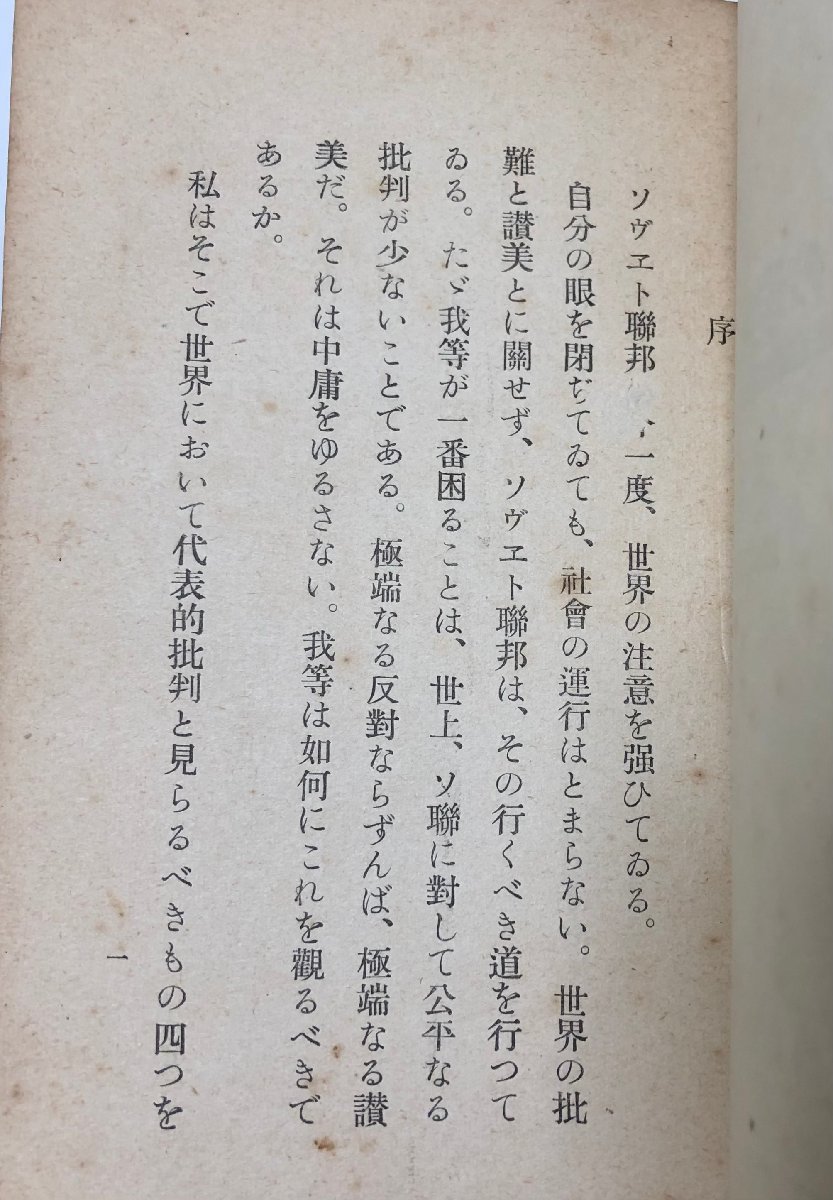 序
ソヴエト聯邦 一度、世界の注意を强ひてゐる。
自分の眼を閉ぢてゐても、社會の運行はとまらない。世界の批
難と讃美とに關せず、ソヴエト聯邦は、その行くべき道を行つて
ゐる。たゞ我等が一番困ることは、世上、ソ聯に對して公平なる
批判が少ないことである。極端なる反對ならずんば、極端なる讃
美だ。それは中庸をゆるさない。我等は如何にこれを觀るべきで
あるか。
私はそこで世界において代表的批判と見らるべきもの四つを
一